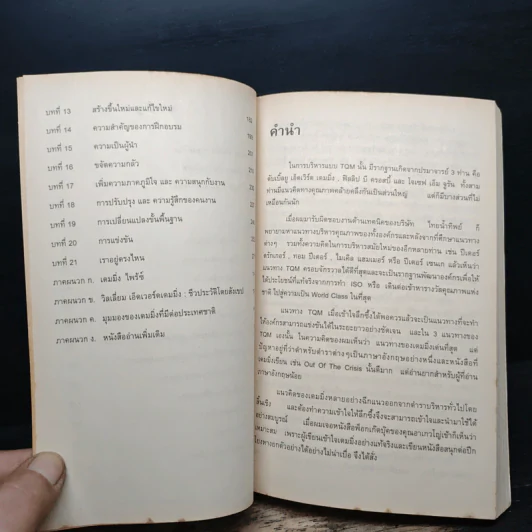 บทที่ 13 สร้างขึ้นใหม่และแก้ไขใหม่
บทที่ 14 ความสำคัญของการฝึกอบรม
บทที่ 15 ความเป็นผู้นำ
บทที่ 16 ขจัดความกลัว
บทที่ 17 เพิ่มความภาคภูมิใจ และ ความสนุกกับงาน
บทที่ 18 การปรับปรุง และ ความรู้สึกของคนงาน
บทที่ 19 การเปลี่ยนแปลงขั้นพื้นฐาน
บทที่ 20 การแข่งขัน
บทที่ 21 เราอยู่ตรงไหน
ภาคผนวก ก. เดมมิ่ง ไพร้ซ์
ภาคผนวก ข. วิลเลี่ยม เอ็ดเวอร์ดเดมมิ่ง : ชีวประวัติโดยสังเขป
ภาคผนวก ค. มุมมองของเดมมิ่งที่มีต่อประเทศชาติ
ภาคผนวก ง. หนังสืออ่านเพิ่มเติม
คำนำ
ในการบริหารแบบ TQM นั้น มีรากฐานเกิดจากปรมาจารย์ 3 ท่าน คือ
ดับเบิ้ลยู เอ็ดเวิร์ด เดมมิ่ง , ฟิลลิป บี ครอสบี้ และ โจเซฟ เอ็ม จูรัน ทั้งสาม
ท่านมีแนวคิดทางคุณภาพคล้ายคลึงกันเป็นส่วนใหญ่ แต่ก็มีบางส่วนที่ไม่
เหมือนกันนัก
เมื่อผมมารับผิดชอบงานด้านเทคนิคของบริษัท ไทยน้ำทิพย์ ก็
พยายามหาแนวทางบริหารคุณภาพของทั้งองค์กรและหลังจากที่ศึกษาแนวทาง
ต่างๆ รวมทั้งความคิดในการบริหารสมัยใหม่ของอีกหลายท่าน เช่น ปีเตอร์
ดรักเกอร์ , ทอม ปีเตอร์ , ไมเคิล แฮมเมอร์ หรือ ปีเตอร์ เซนเก แล้วเห็นว่า
แนวทาง TQM ครอบจักรวาลได้ดีที่สุดและจะเป็นรากฐานพัฒนาองค์กรเพื่อให้
ได้ประโยชน์ที่แท้จริงจากการทำ ISO หรือ เดินต่อเข้าหารางวัลคุณภาพแห่ง
ชาติ ไปสู่ความเป็น World Class ในที่สุด
แนวทาง TQM เมื่อเข้าใจลึกซึ้งได้พอควรแล้วจะเป็นแนวทางที่จะทำ
ให้องค์กรสามารถแข่งขันได้ในระยะยาวอย่างชัดเจน และใน 3 แนวทางของ
TQM เองนั้น ในความคิดของผมเห็นว่า แนวทางของเดมมิ่งเด่นที่สุด แต่
ปัญหาอยู่ที่ว่าตำหรับตำราต่างๆเป็นภาษาอังกฤษอย่างหนึ่งและหนังสือที่
เดมมิ่งเขียน เช่น Out Of The Crisis นั้นดีมาก แต่อ่านยากสำหรับผู้ที่อ่าน
ภาษาอังกฤษน้อย
แนวคิดของเดมมิ่งหลายอย่างฉีกแนวออกจากตำราบริหารทั่วไปโดย
สิ้นเชิง และต้องทำความเข้าใจให้ลึกซึ้งจึงจะสามารถเข้าใจและนำมาใช้ได้
อย่างสมบูรณ์ เมื่อผมเจอหนังสือพ็อกเก็ตบุ๊คของคุณอาเกวโญ่เข้าก็เห็นว่า
เหมาะสม เพราะผู้เขียนเข้าใจเดมมิ่งอย่างแท้จริงและเขียนหนังสือสนุกต่อปีก
โยงหางอกตัวอย่างได้อย่างไม่น่าเบื่อ จึงได้สั่ง